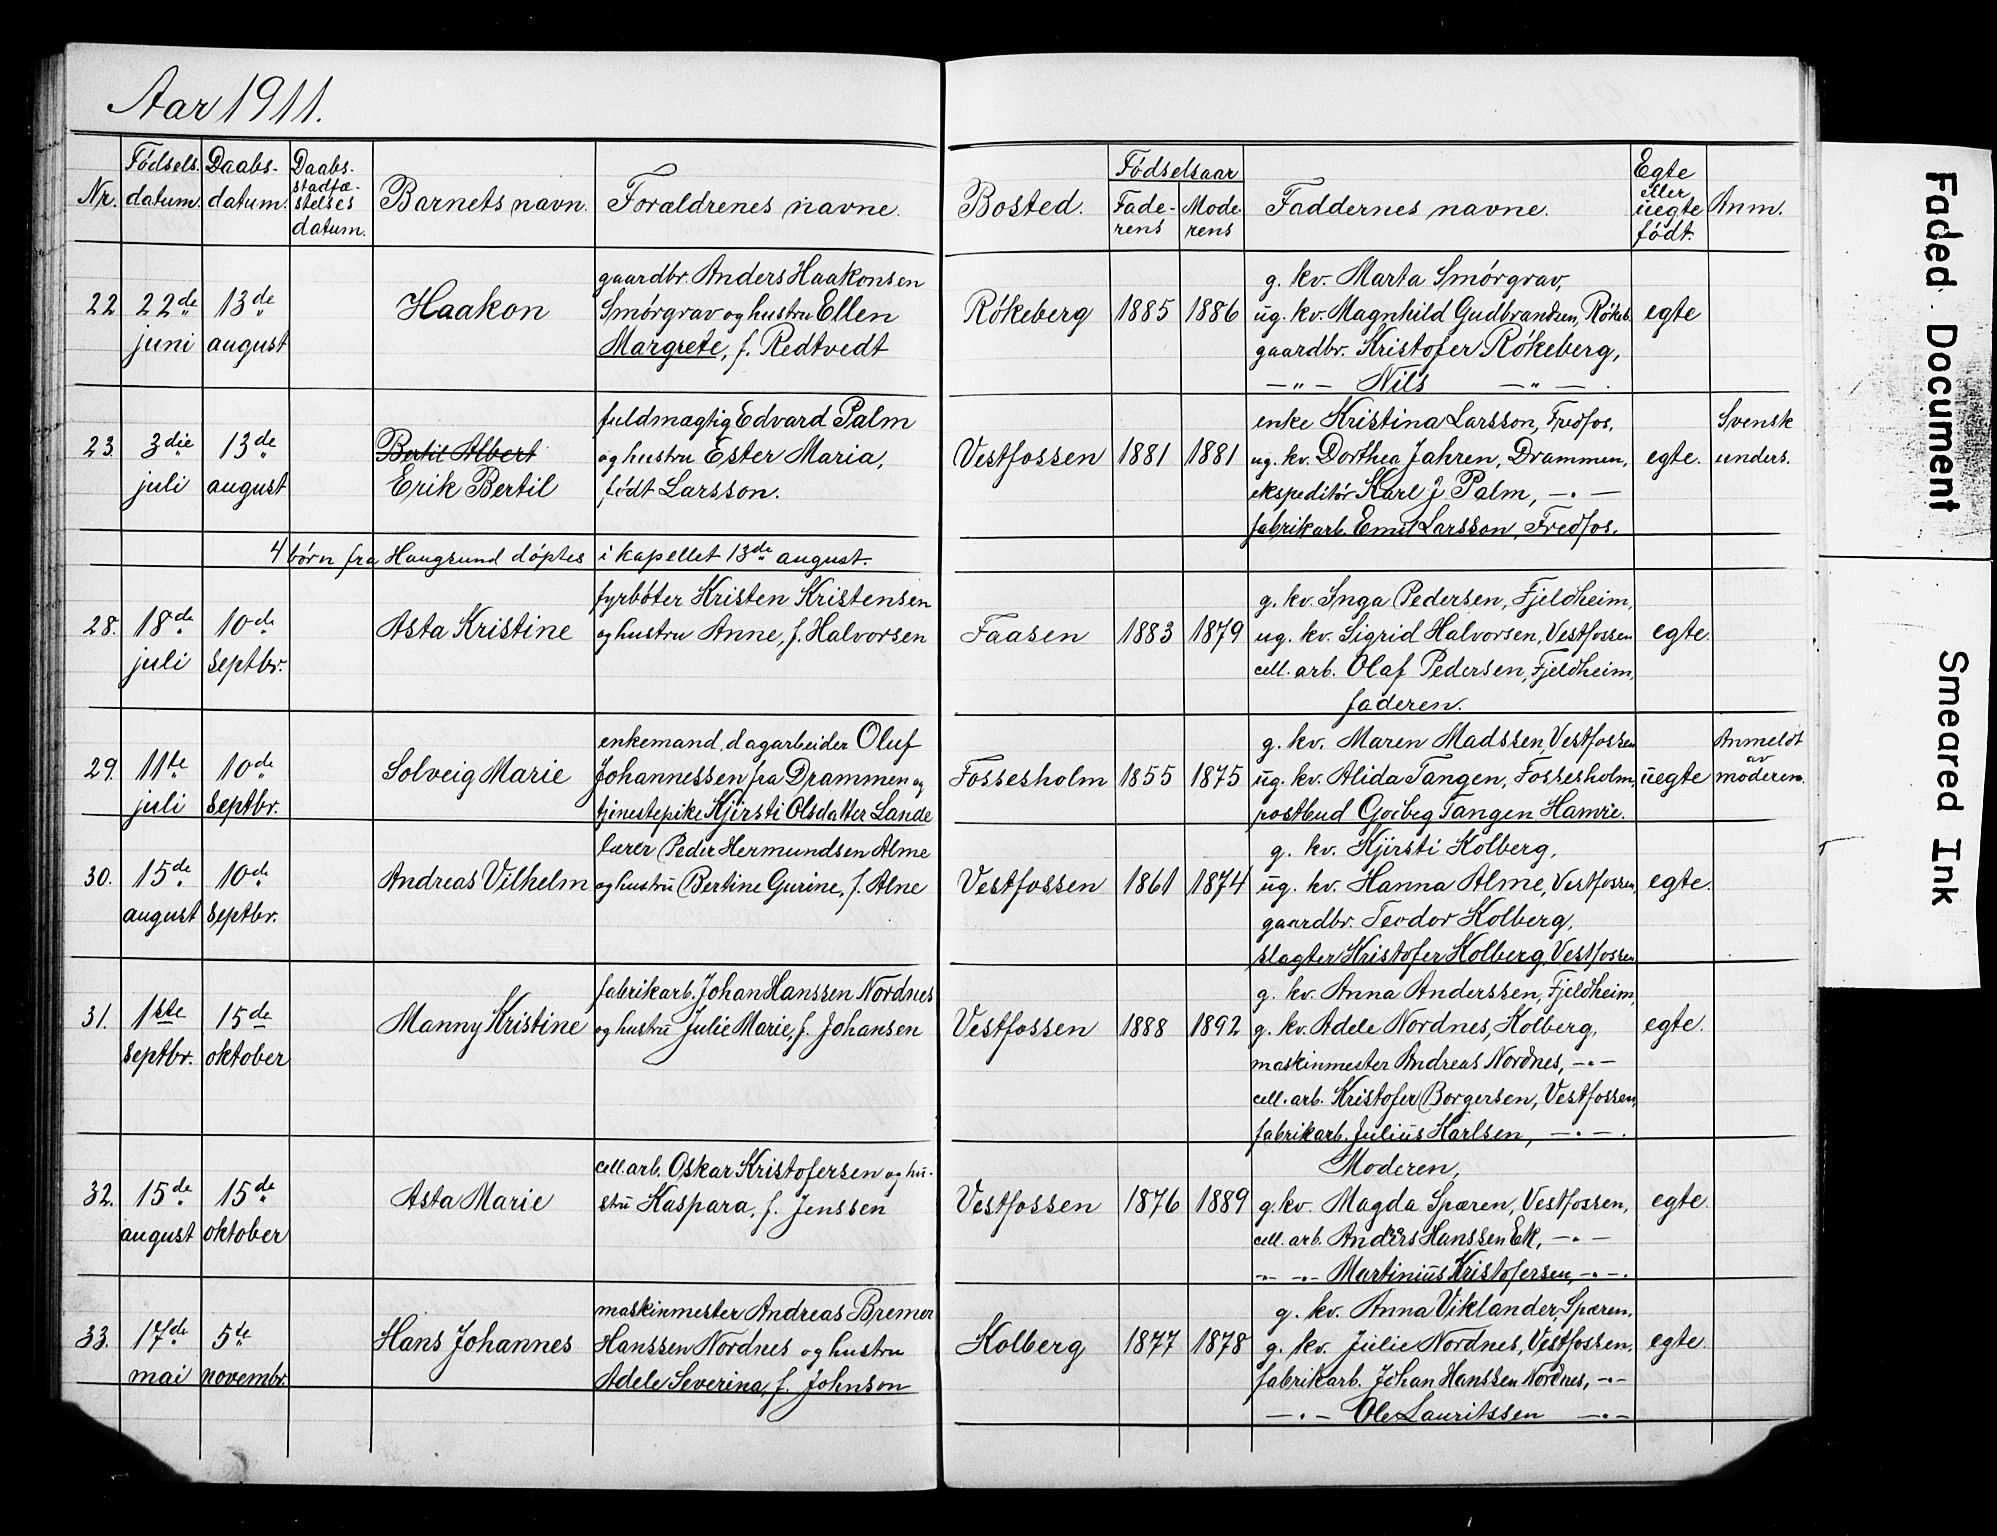 Aar 1911.
Nr.
Fødsels-
datum.
Daabs-
datum.
Daabs-
stadfæ-
stelses
datum.
Barnets navn.
Forældrenes navne.
Bosted.
Fødselsaar
Fade-
rens
Mode-
rens
Faddernes navne.
Egte
eller
uegte
født.
Anm.
22
22de
juni
13de
august
Haakon
gaardbr. Anders Haakonsen
Smørgrav og hustru Ellen
Margrete, f. Redtvedt
Røkeberg
1885
1886
g. kv. Marta Smørgrav,
ug. kv. Magnhild Gudbrandsen, Røkeb.
gaardbr. Kristofer Røkeberg,
—„— Nils —„—.
egte
23.
3die
juli
13de
august
Bertil Albert
Erik Bertil
fuldmægtig Edvard Palm
og hustru Ester Maria,
født Larsson.
Vestfossen
1881
1881
enke Kristina Larsson, Fredfos,
ug. kv. Dorthea Jahren, Drammen,
ekspeditør Karl J. Palm, —.—
fabrikarb. Emil Larsson, Fredfos.
egte.
Svensk
unders.
4 børn fra Haugsund døptes i kapellet 13de august.
28.
18de
juli
10de
septbr.
Asta Kristine
fyrbøter Kristen Kristensen
og hustru Anne, f. Halvorsen
Faasen
1883
1879
g. kv. Inga Pedersen, Fjeldheim,
ug. kv. Sigrid Halvorsen, Vestfossen
cell. arb. Olaf Pedersen, Fjeldheim,
faderen.
egte
29.
11te
juli
10de
septbr.
Solveig Marie
enkemand, dagarbeider Oluf
Johannessen fra Drammen og
tjenestepike Kjirsti Olsdatter Lande
Fossesholm
1855
1875
g. kv. Maren Madssen, Vestfossen
ug. kv. Alida Tangen, Fossesholm,
postbud Tangen
uegte
Anmeldt
av
moderen.
30.
15de
august
10de
septbr.
Andreas Vilhelm
lærer Peder Hermundsen Alme
og hustru Bertine Gurine, f. Alne
Vestfossen
1861
1874
g. kv. Kjirsti Kolberg,
ug. kv. Hanna Alme, Vestfossen,
gaardbr. Teodor Kolberg,
slagter Kristofer Kolberg, Vestfossen
egte.
31.
1ste
septbr.
15de
oktober
Manny Kristine
fabrikarb. Johan Hanssen Nordnes
og hustru Julie Marie, f. Johansen
Vestfossen
1888
1892
g. kv. Anna Anderssen, Fjeldheim,
g. kv. Adele Nordnes, Kolberg,
maskinmester Andreas Nordnes, —.—
cell. arb. Kristofer Borgersen, Vestfossen,
fabrikarb. Julius Karlsen, —.—.
egte.
32.
15de
august
15de
oktober
Asta Marie
cell. arb. Oskar Kristofersen og hu-
stru Kaspara, f. Jenssen
Vestfossen
1876
1889
Moderen,
g. kv. Magda Spæren, Vestfossen,
cell. arb. Anders Hanssen Ek, —.—
—.— —.— Martinius Kristofersen, —.—.
egte.
33.
17de
mai
5te
novembr.
Hans Johannes
maskinmester Andreas Bremer
Hanssen Nordnes og hustru
Adele Severina, f. Johnson
Kolberg
1877
1878
g. kv. Anna Viklander, Spæren,
g. kv. Julie Nordnes, Vestfossen,
fabrikarb. Johan Hanssen Nordnes, —.—
—.— Ole Lauritssen —.—
egte.
Faded Document
Smeared Ink